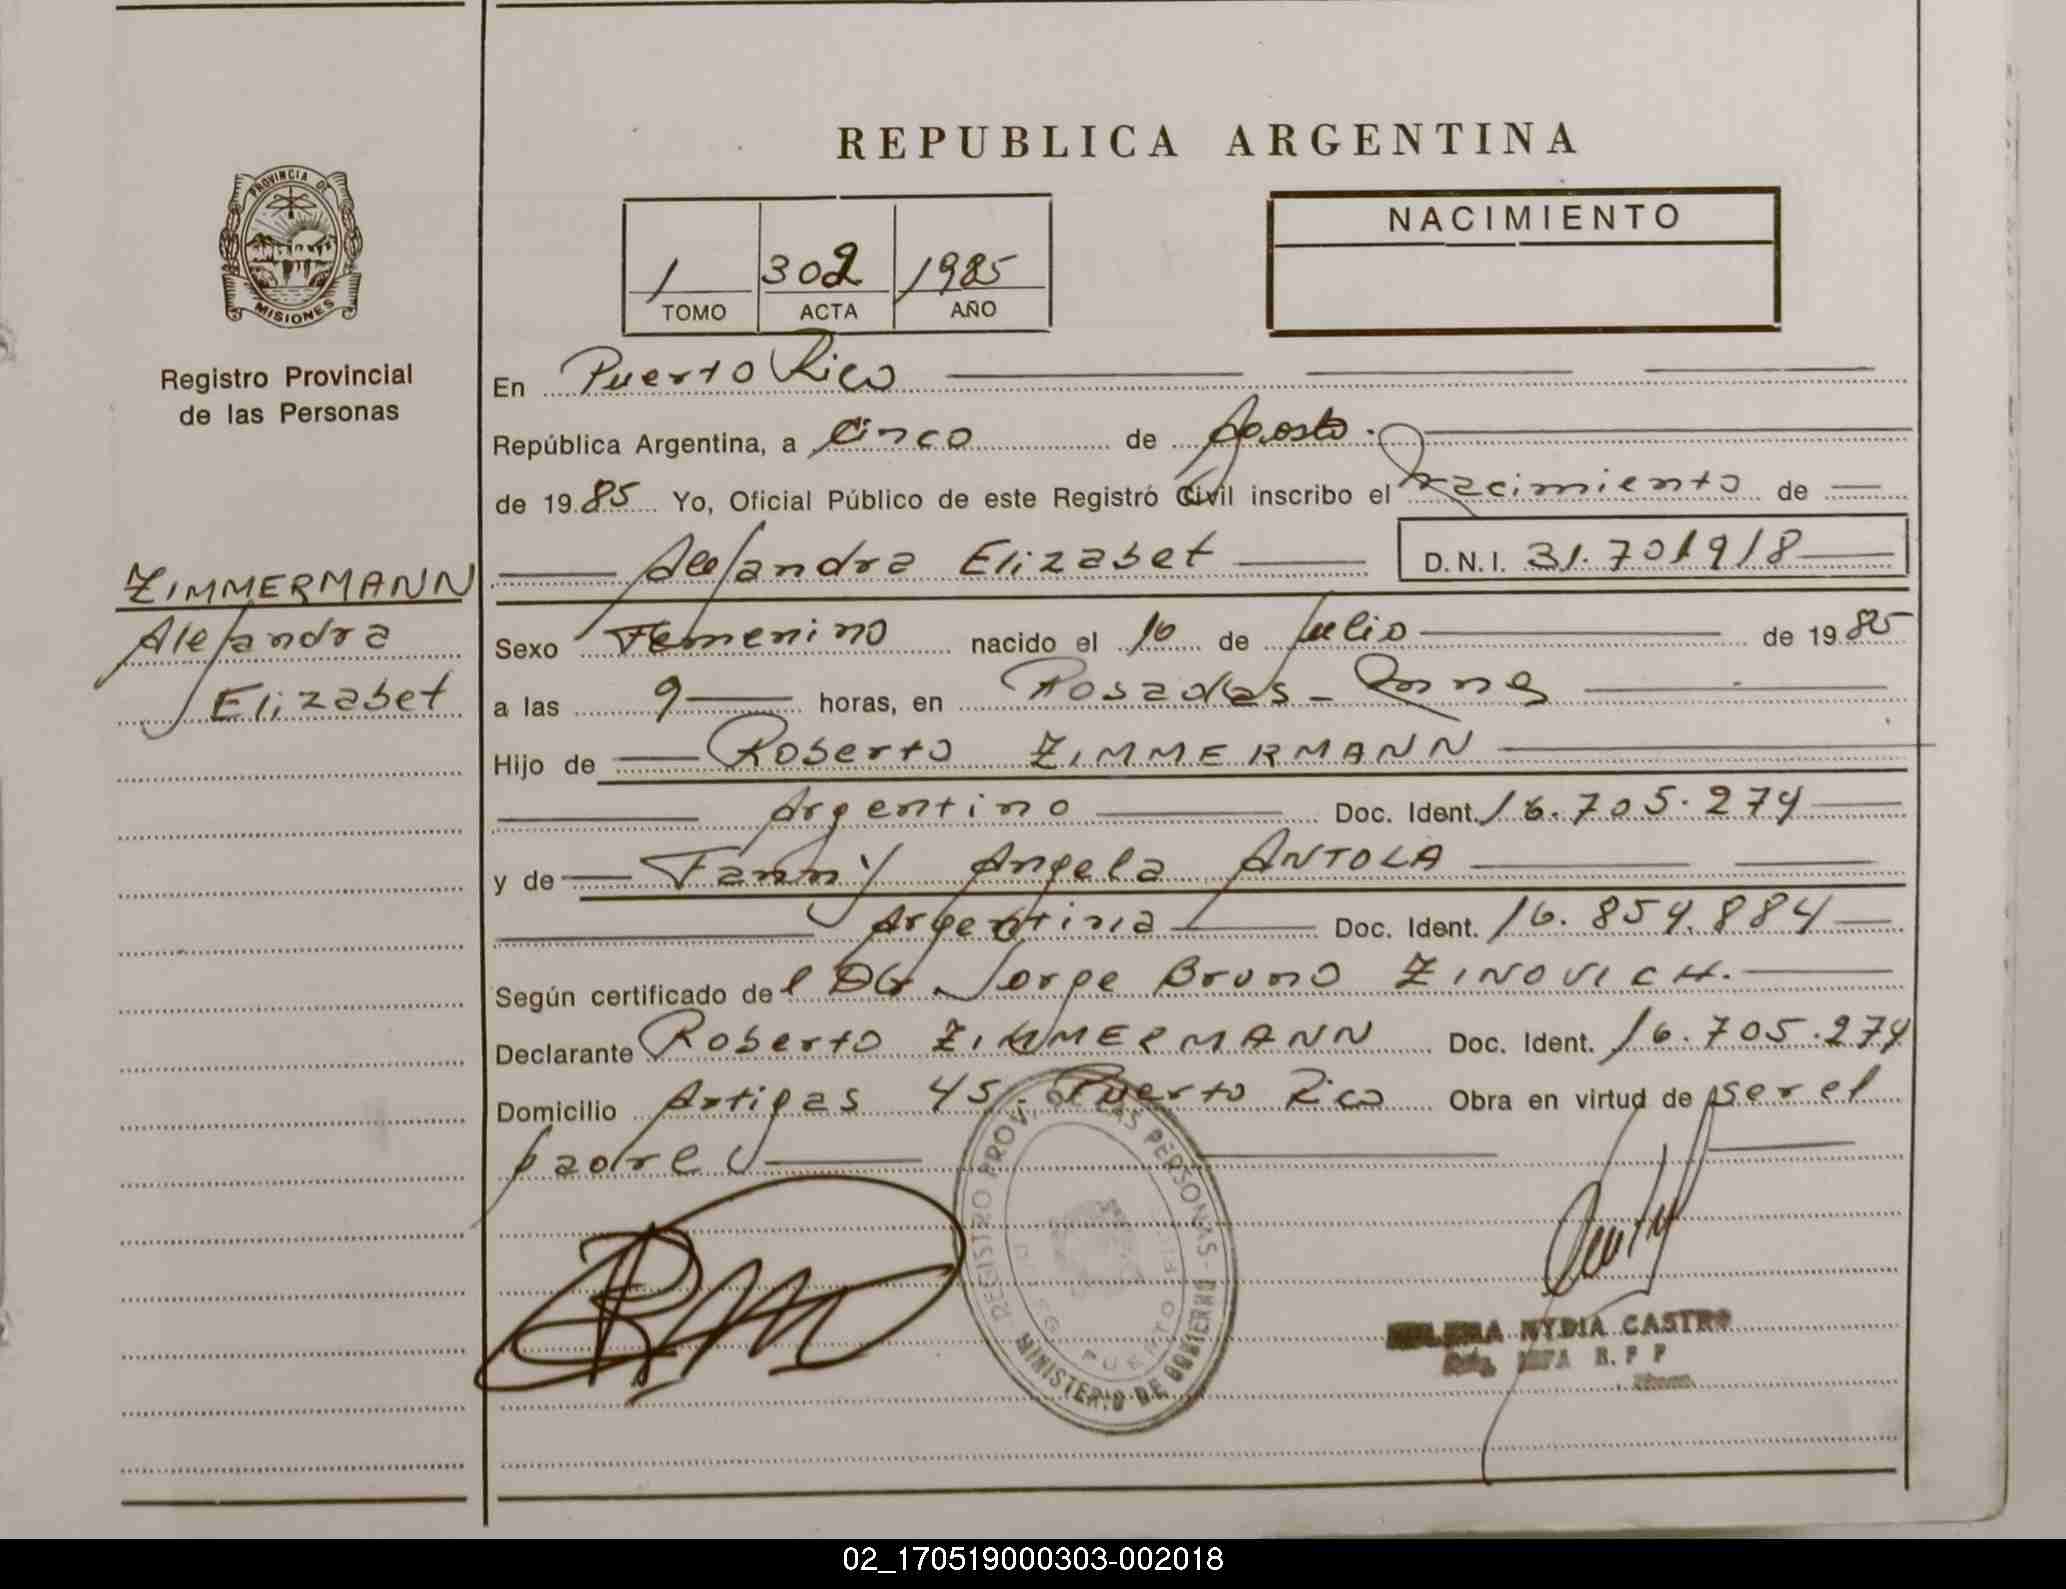 REPUBLICA ARGENTINA
PROVINCIA DE
MISIONES
Registro Provincial
de las Personas
ZIMMERMANN
Alejandra
Elizabet
1 302 1985
TOMO ACTA AÑO
NACIMIENTO
En Puerto Rico
República Argentina, a Cinco de Agosto.
de 19 85 Yo, Oficial Público de este Registro Civil inscribo el Nacimiento de
Alejandra Elizabet D.N.I. 31.701918
Sexo Femenino nacido el 10 de Julio de 19 85
a las 9 horas, en Posadas -
Hijo de Roberto ZIMMERMANN
Argentino Doc. Ident. 16.705.274
y de Fanny Angela ANTOLA
Argentina Doc. Ident. 16.859.884
Según certificado de l Dr. Jorge Bruno ZINOVICH.
Declarante Roberto ZIMMERMANN Doc. Ident. 16.705.274
Domicilio Artigas 45. Puerto Rico Obra en virtud de ser el
padre
REGISTRO PROV. LAS PERSONAS - MINISTERIO DE GOBIERNO
PUERTO
NYDIA CASTRO
R. P. P
02_170519000303-002018